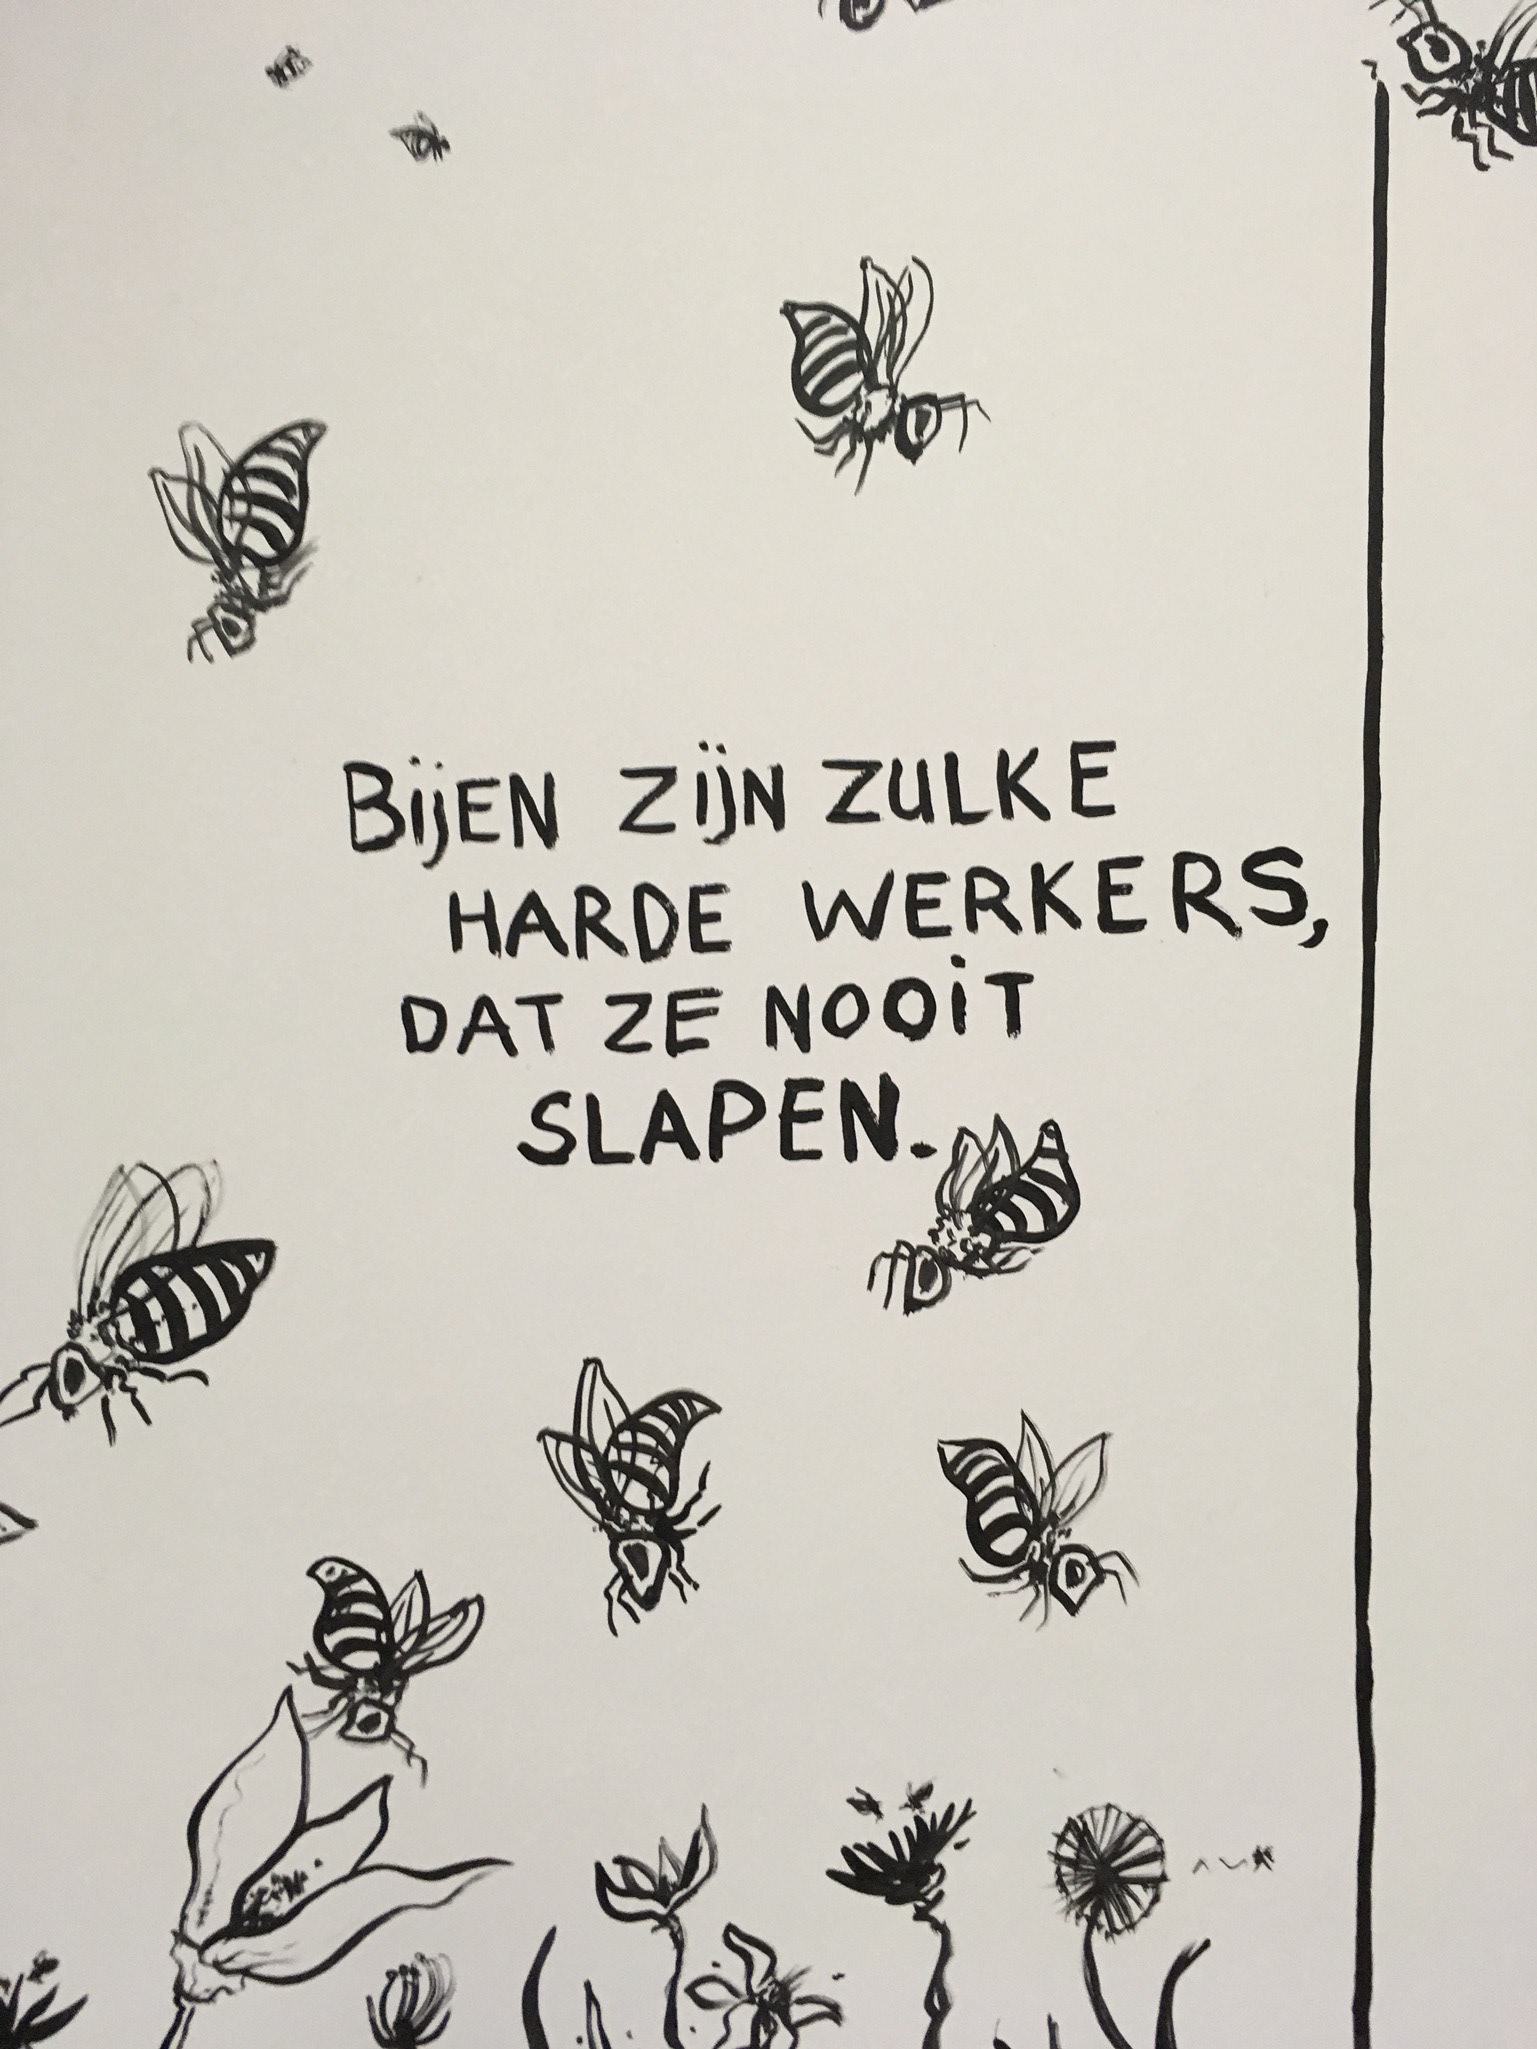 BijEN ZijN ZULKE
HARDE WERKERS,
DAT ZE NOOiT
SLAPEN.